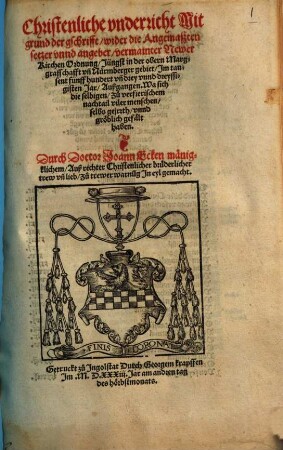 1
Christenliche vnderricht Mit
grund der gschrifft / wider die Angemaßzten
setzer vnnd angeber / vermainter Newer
Kirchen Ordnung / Jüngst in der obern Marg-
graffschafft vñ Nürmberger gebiet / Im tau-
sent fünff hundert vñ drey vnnd dreyssi-
gisten Jar / Außgangen. Wa sich
die selbigen / Zů verfierischem
nachtail viler menschen /
selbs geierth / vnnd
gröblich gefält
haben.
Durch Doctor Joann Ecken mänig-
klichem / Auß rechter Christenlicher brůderlicher
trew vñ lieb / Zů trewer warnũg In eyl gemacht.
FINIS CORONA
Getruckt zů Ingolstat Durch Georgem krapffen
Im .M. D. XXXiii. Jar am andren tag
des hörbstmonats.